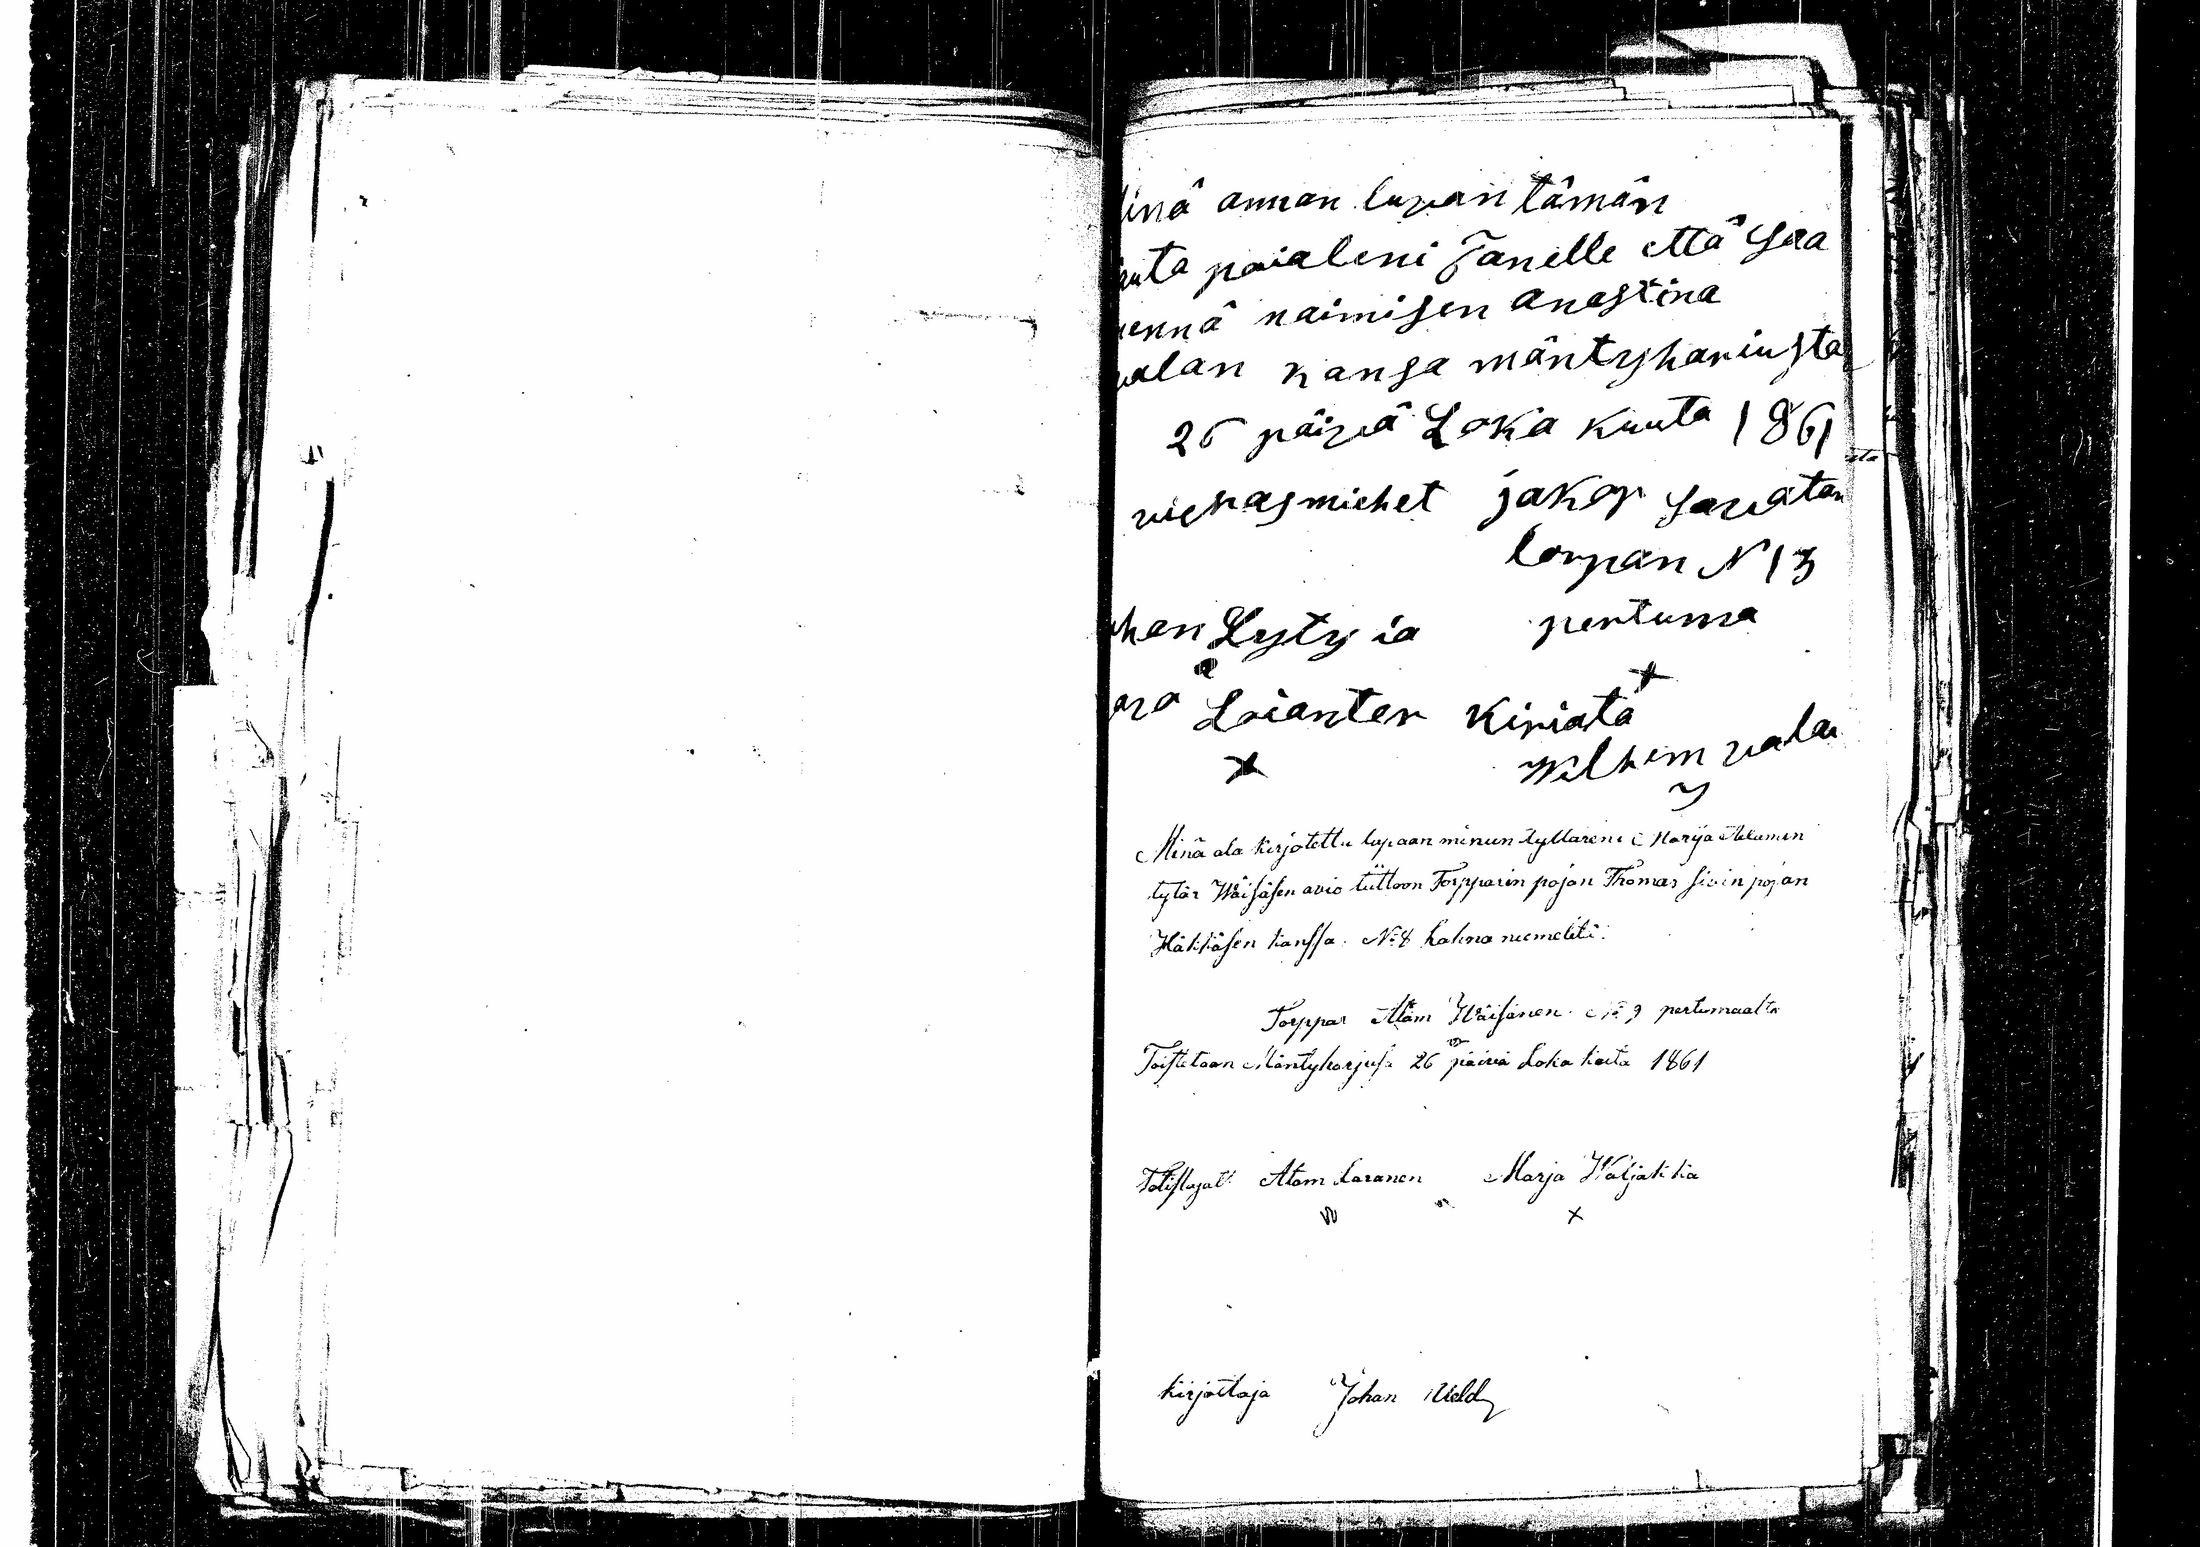 inä annan lupan tämän
uta poialeni Tanelle että saa
ennä naimisen anastina
valan kansa mäntyhariusta
26 päivä Loka kuuta 1861
vierasmiehet jakop savatan
torpan N 13
han Lyty ia pertuma
ara Loianter kiriata
Wilhem vala
Minä ala kirjotettu lupaan minun tyttäreni Marija Atamin
tytär Wäisäsen avio liittoon Torpparin pojan Thomas Sivin pojan
Häkkäsen kanssa. No 8 hahna niemeltä.
Torppar Atam Wäisänen. No 9 pertumaalta
Toistetaan Mäntyharjusa 26 päivä Loka kuuta 1861
Totistajat Atam Laranen Marja Waljakka
kirjoittaja Johan Weld